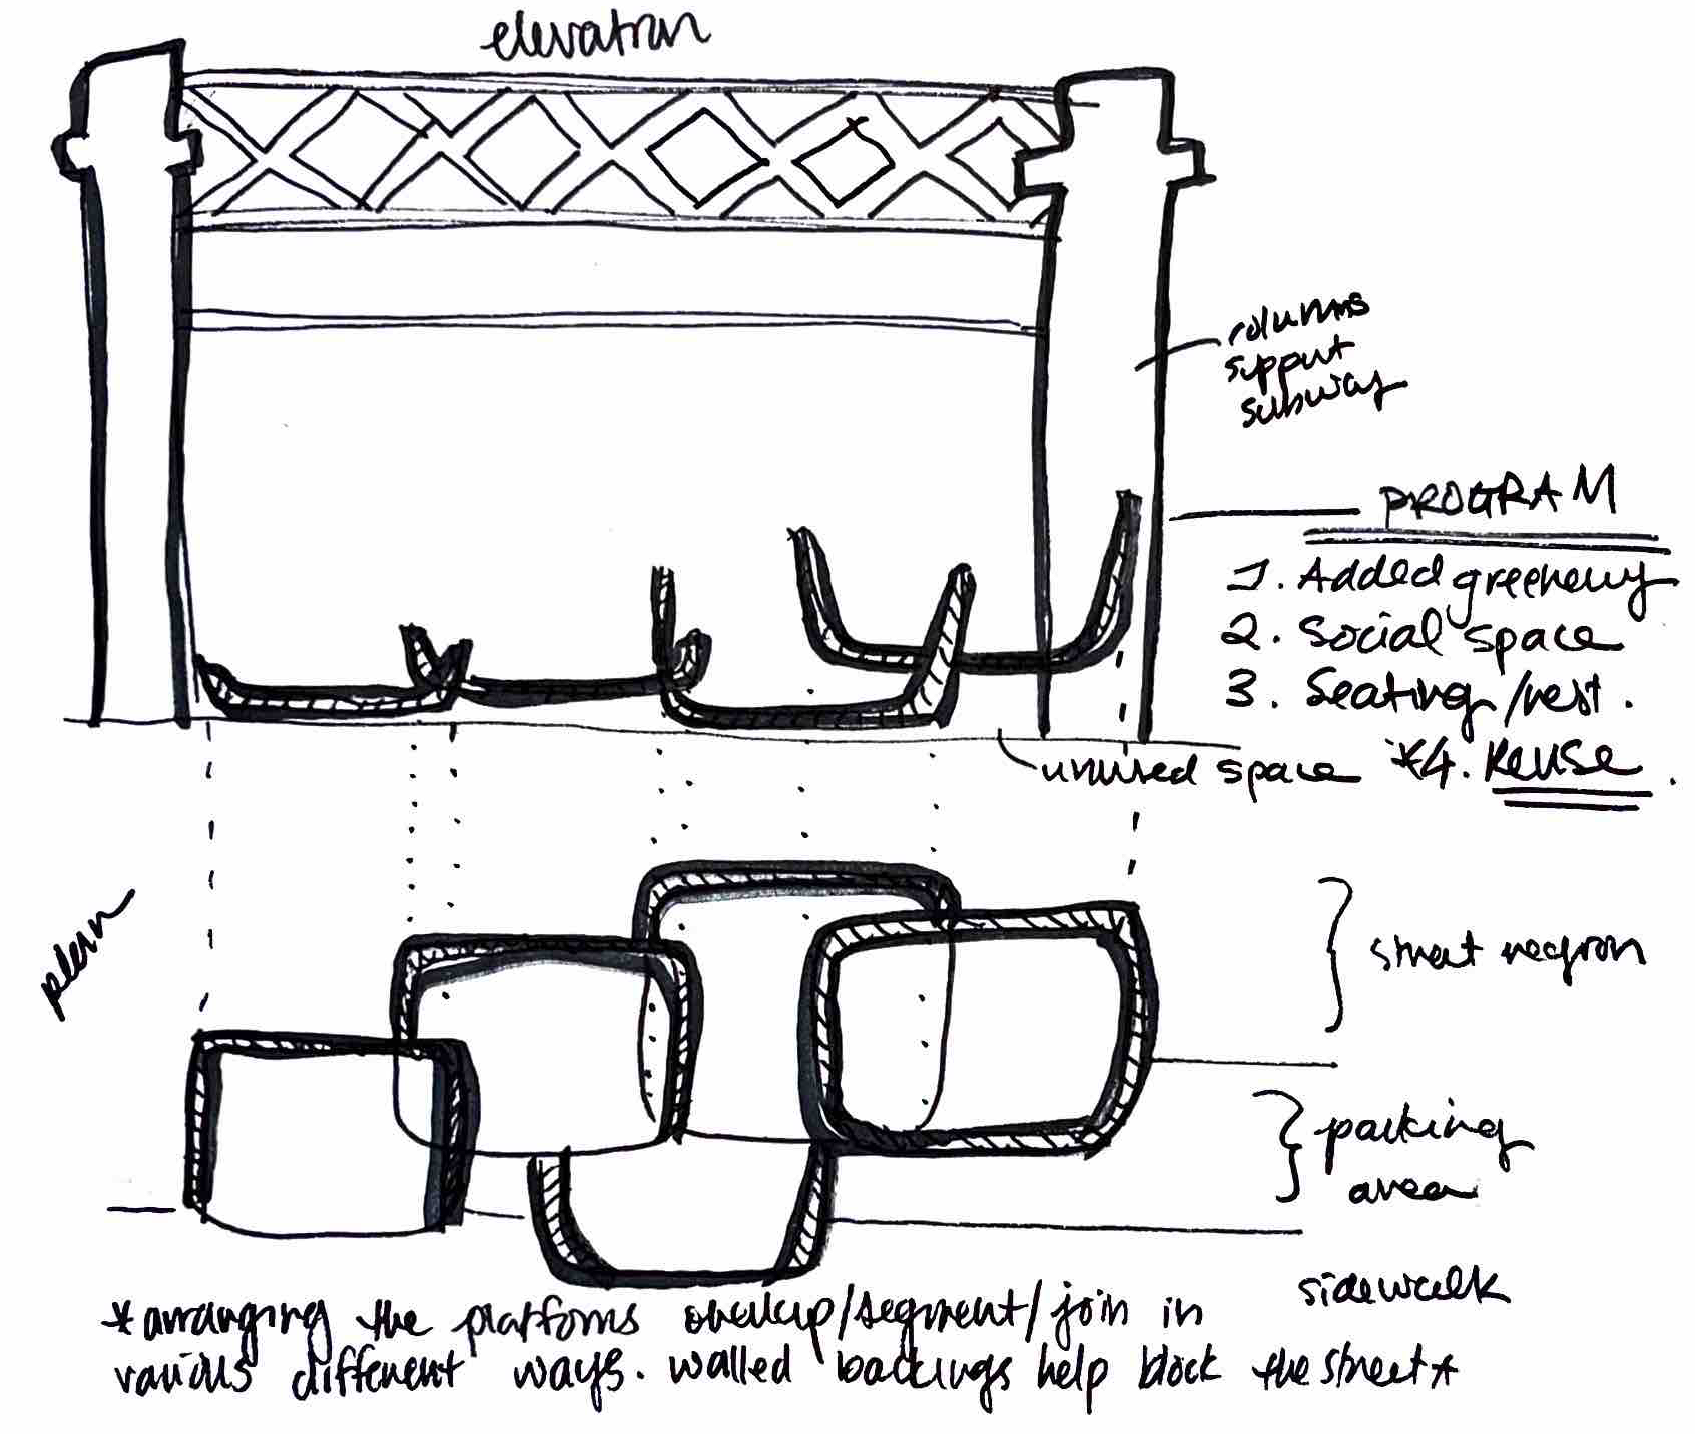 elevation
columns
support
subway
PROGRAM
1. Added greenery
2. Social space
3. Seating/rest.
unused space
*4. Reuse.
plan
street region
parking
area
sidewalk
*arranging the platforms overlap/segment/join in
various different ways. walled backings help block the street*